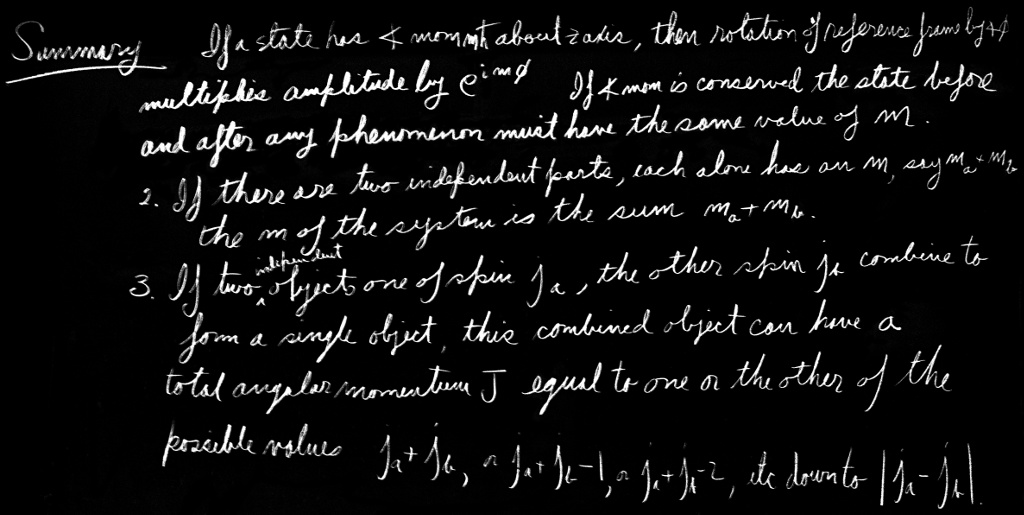 Summary If a state has ∡ momm'm about z axis, then rotation of reference frame by +ϕ
multiplies amplitude by e^{imϕ} If ∡ mom is conserved the state before
and after any phenomenon must have the same value of m.
2. If there are two independent parts, each alone has an m, say m_a + m_b
the m of the system is the sum m_a + m_b.
independent
3. If two ^ objects one of spin j_a, the other spin j_b combine to
form a single object, this combined object can have a
total angular momentum J equal to one or the other of the
possible values j_a + j_b, or j_a + j_b - 1, or j_a + j_b - 2, etc down to |j_a - j_b|.